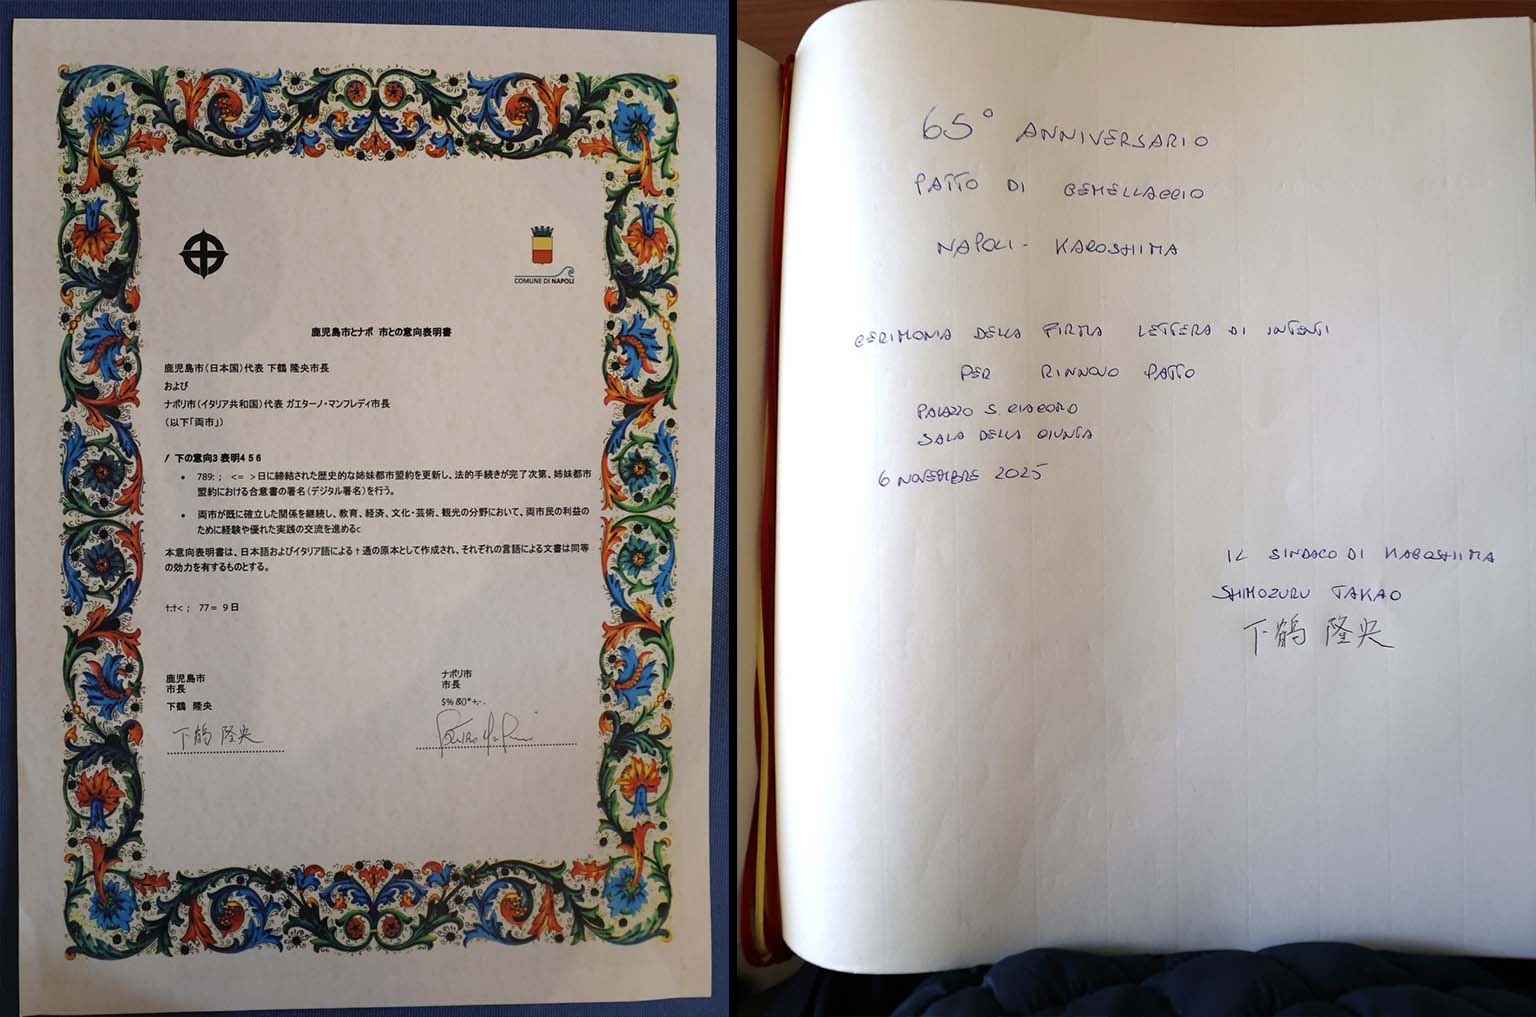 COMUNE DI NAPOLI
鹿児島市とナポ 市との意向表明書
鹿児島市(日本国)代表 下鶴 隆央市長
および
ナポリ市(イタリア共和国)代表 ガエターノ・マンフレディ市長
(以下「両市」)
/ 下の意向3 表明4 5 6
• 789: ; <= >日に締結された歴史的な姉妹都市盟約を更新し、法的手続きが完了次第、姉妹都市
盟約における合意書の署名(デジタル署名)を行う。
• 両市が既に確立した関係を継続し、教育、経済、文化・芸術、観光の分野において、両市民の利益の
ために経験や優れた実践の交流を進めるc
本意向表明書は、日本語およびイタリア語による † 通の原本として作成され、それぞれの言語による文書は同等
の効力を有するものとする。
†:†< ; 77 = 9 日
鹿児島市
市長
下鶴 隆央
下鶴 隆央
ナポリ市
市長
$% &()*+,- .
65° ANNIVERSARIO
PATTO DI GEMELLAGGIO
NAPOLI - KAGOSHIMA
CERIMONIA DELLA FIRMA LETTERA DI INTENTI
PER RINNOVO PATTO
PALAZZO S. GIACOMO
SALA DELLA GIUNTA
6 NOVEMBRE 2025
IL SINDACO DI KAGOSHIMA
SHIMOZURU TAKAO
下鶴 隆央